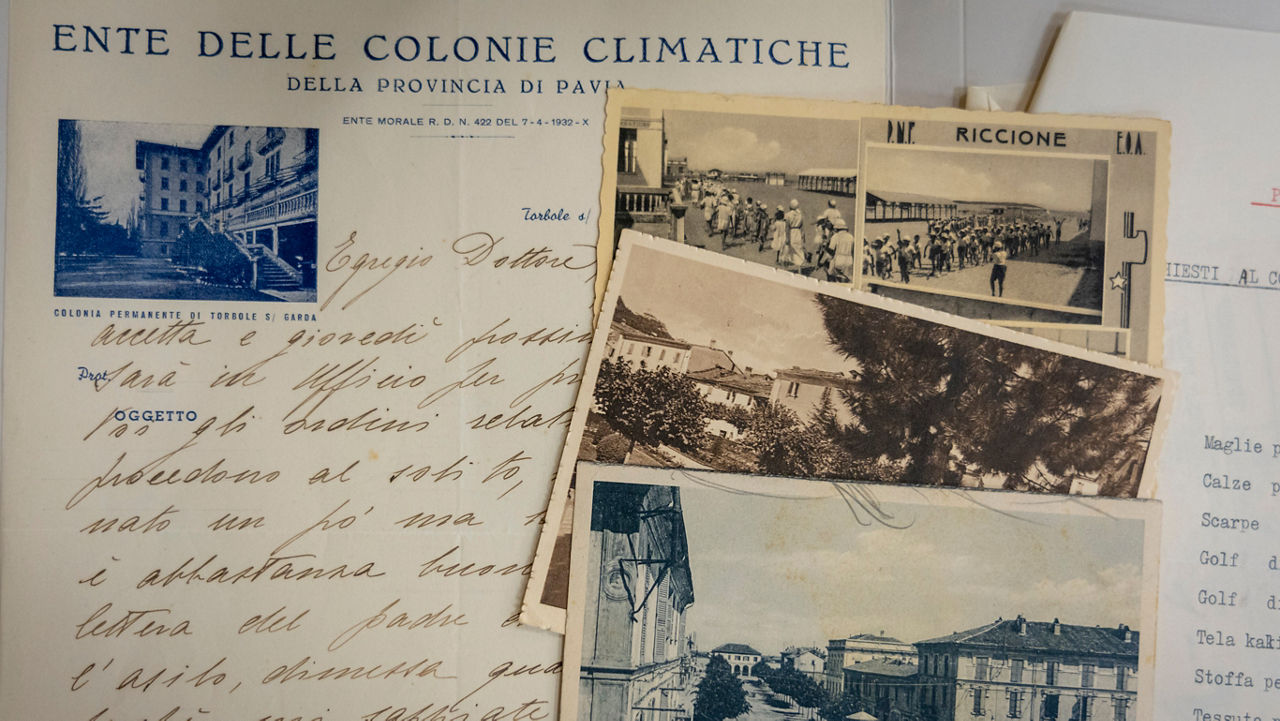 ENTE DELLE COLONIE CLIMATICHE
DELLA PROVINCIA DI PAVIA
ENTE MORALE R. D. N. 422 DEL 7-4-1932-X
COLONIA PERMANENTE DI TORBOLE S/ GARDA
Torbole s/
Prot.
OGGETTO
Egregio Dottore,
accetta e giovedì prossi
sarà in Ufficio per pr
gli ordini relat
procedono al solito,
nato un po' ma
è abbastanza buon
lettera del padre
l'asilo, dimessa qua
sappiate
P.N.F. RICCIONE E.O.A.
HIESTI AL CO
Maglie p
Calze p
Scarpe
Golf d
Golf di
Tela kaki
Stoffa pe
Tessuto